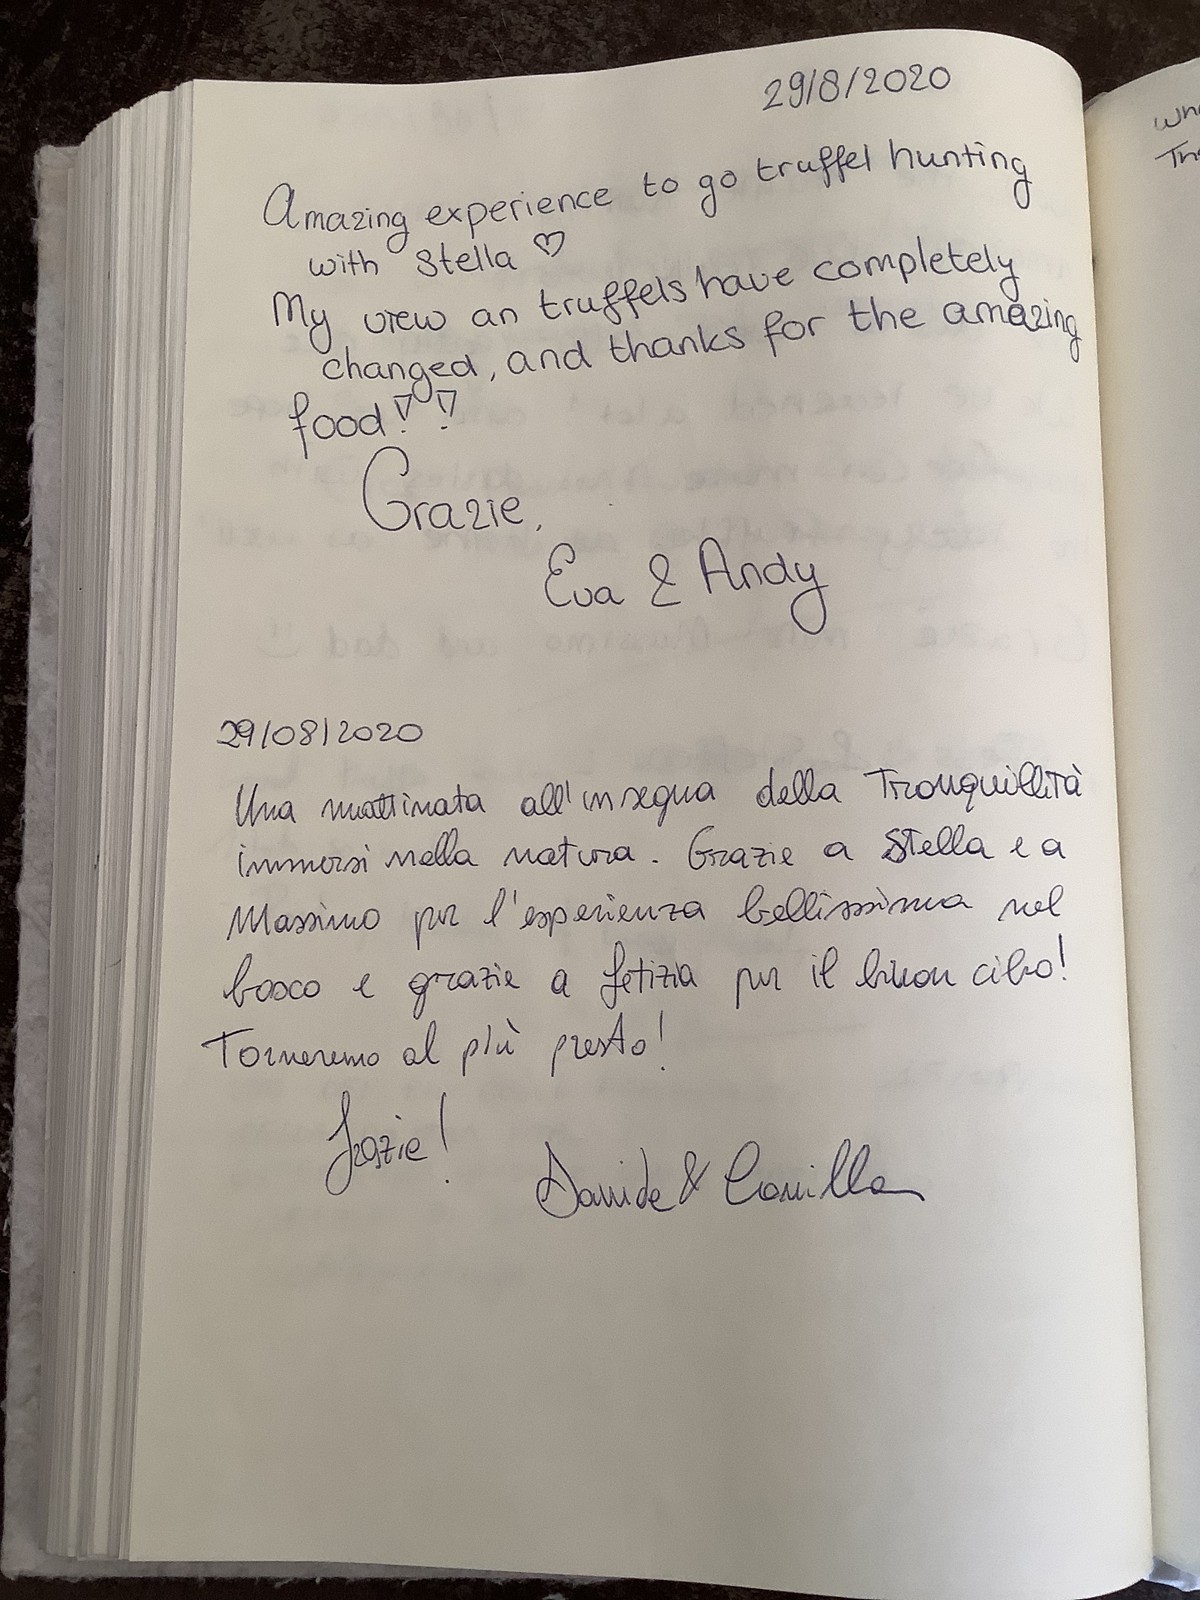 29/8/2020
Amazing experience to go truffel hunting
with Stella ♡
My view an truffels have completely
changed, and thanks for the amazing
food!!
Grazie,
Eva & Andy
29/08/2020
Una mattinata all'insegna della Tranquillità
immersi nella natura. Grazie a Stella e a
Massimo per l'esperienza bellissima nel
bosco e grazie a Letizia per il buon cibo!
Torneremo al più presto!
Grazie!
Davide & Camilla